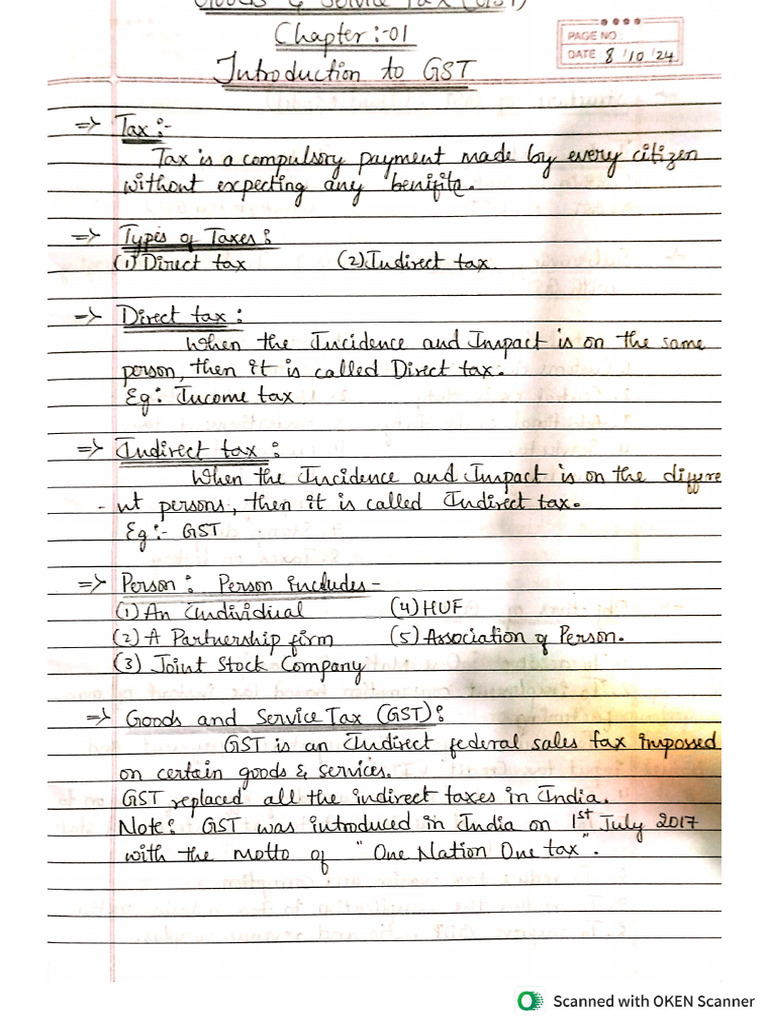 Goods & Service Tax (GST)
Chapter:-01
PAGE NO:
DATE 8/10/24
Introduction to GST
=> Tax :-
Tax is a compulsory payment made by every citizen
without expecting any benifits.
=> Types of Taxes :
(1) Direct tax (2) Indirect tax
=> Direct tax :
When the Incidence and Impact is on the same
person, then it is called Direct tax.
Eg: Income tax
=> Indirect tax :
When the Incidence and Impact is on the differe
-nt persons, then it is called Indirect tax.
Eg:- GST
=> Person : Person includes -
(1) An Individual (4) HUF
(2) A Partnership firm (5) Association of Person.
(3) Joint Stock Company
=> Goods and Service Tax (GST) :
GST is an Indirect federal sales tax impossed
on certain goods & services.
GST replaced all the indirect taxes in India.
Note: GST was introduced in India on 1st July 2017
with the motto of "One Nation One tax".
Scanned with OKEN Scanner